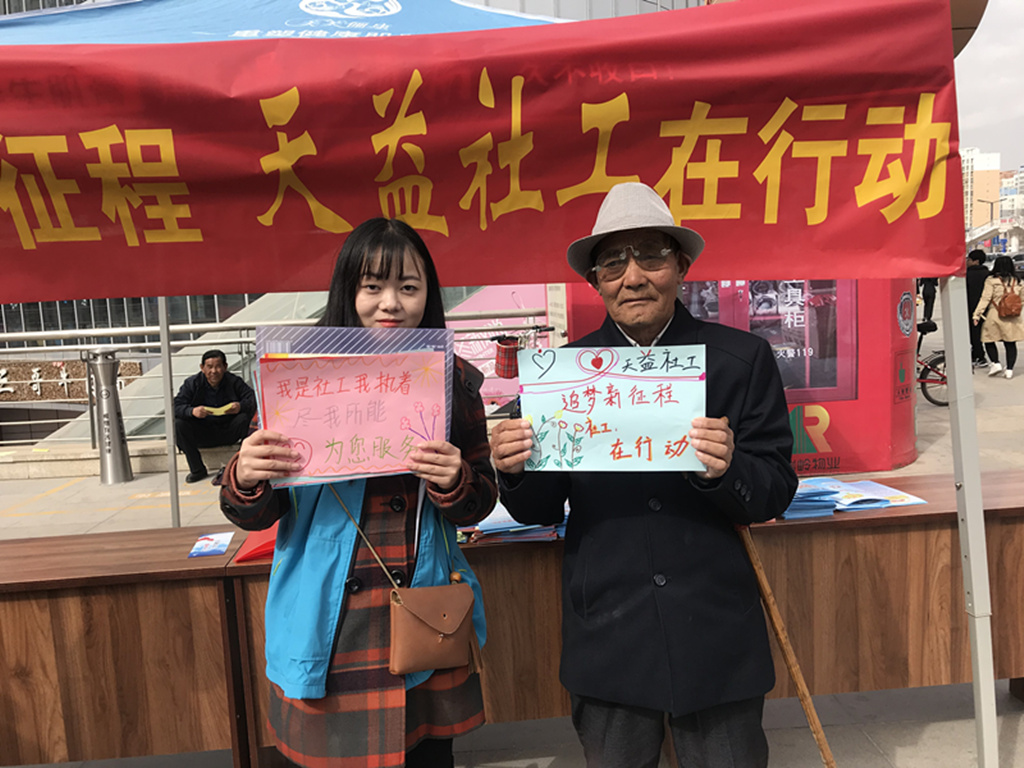 征程 天益社工在行动
我是社工我执着
尽我所能
为您服务
天益社工
追梦新征程
社工
在行动
具柜
火警119